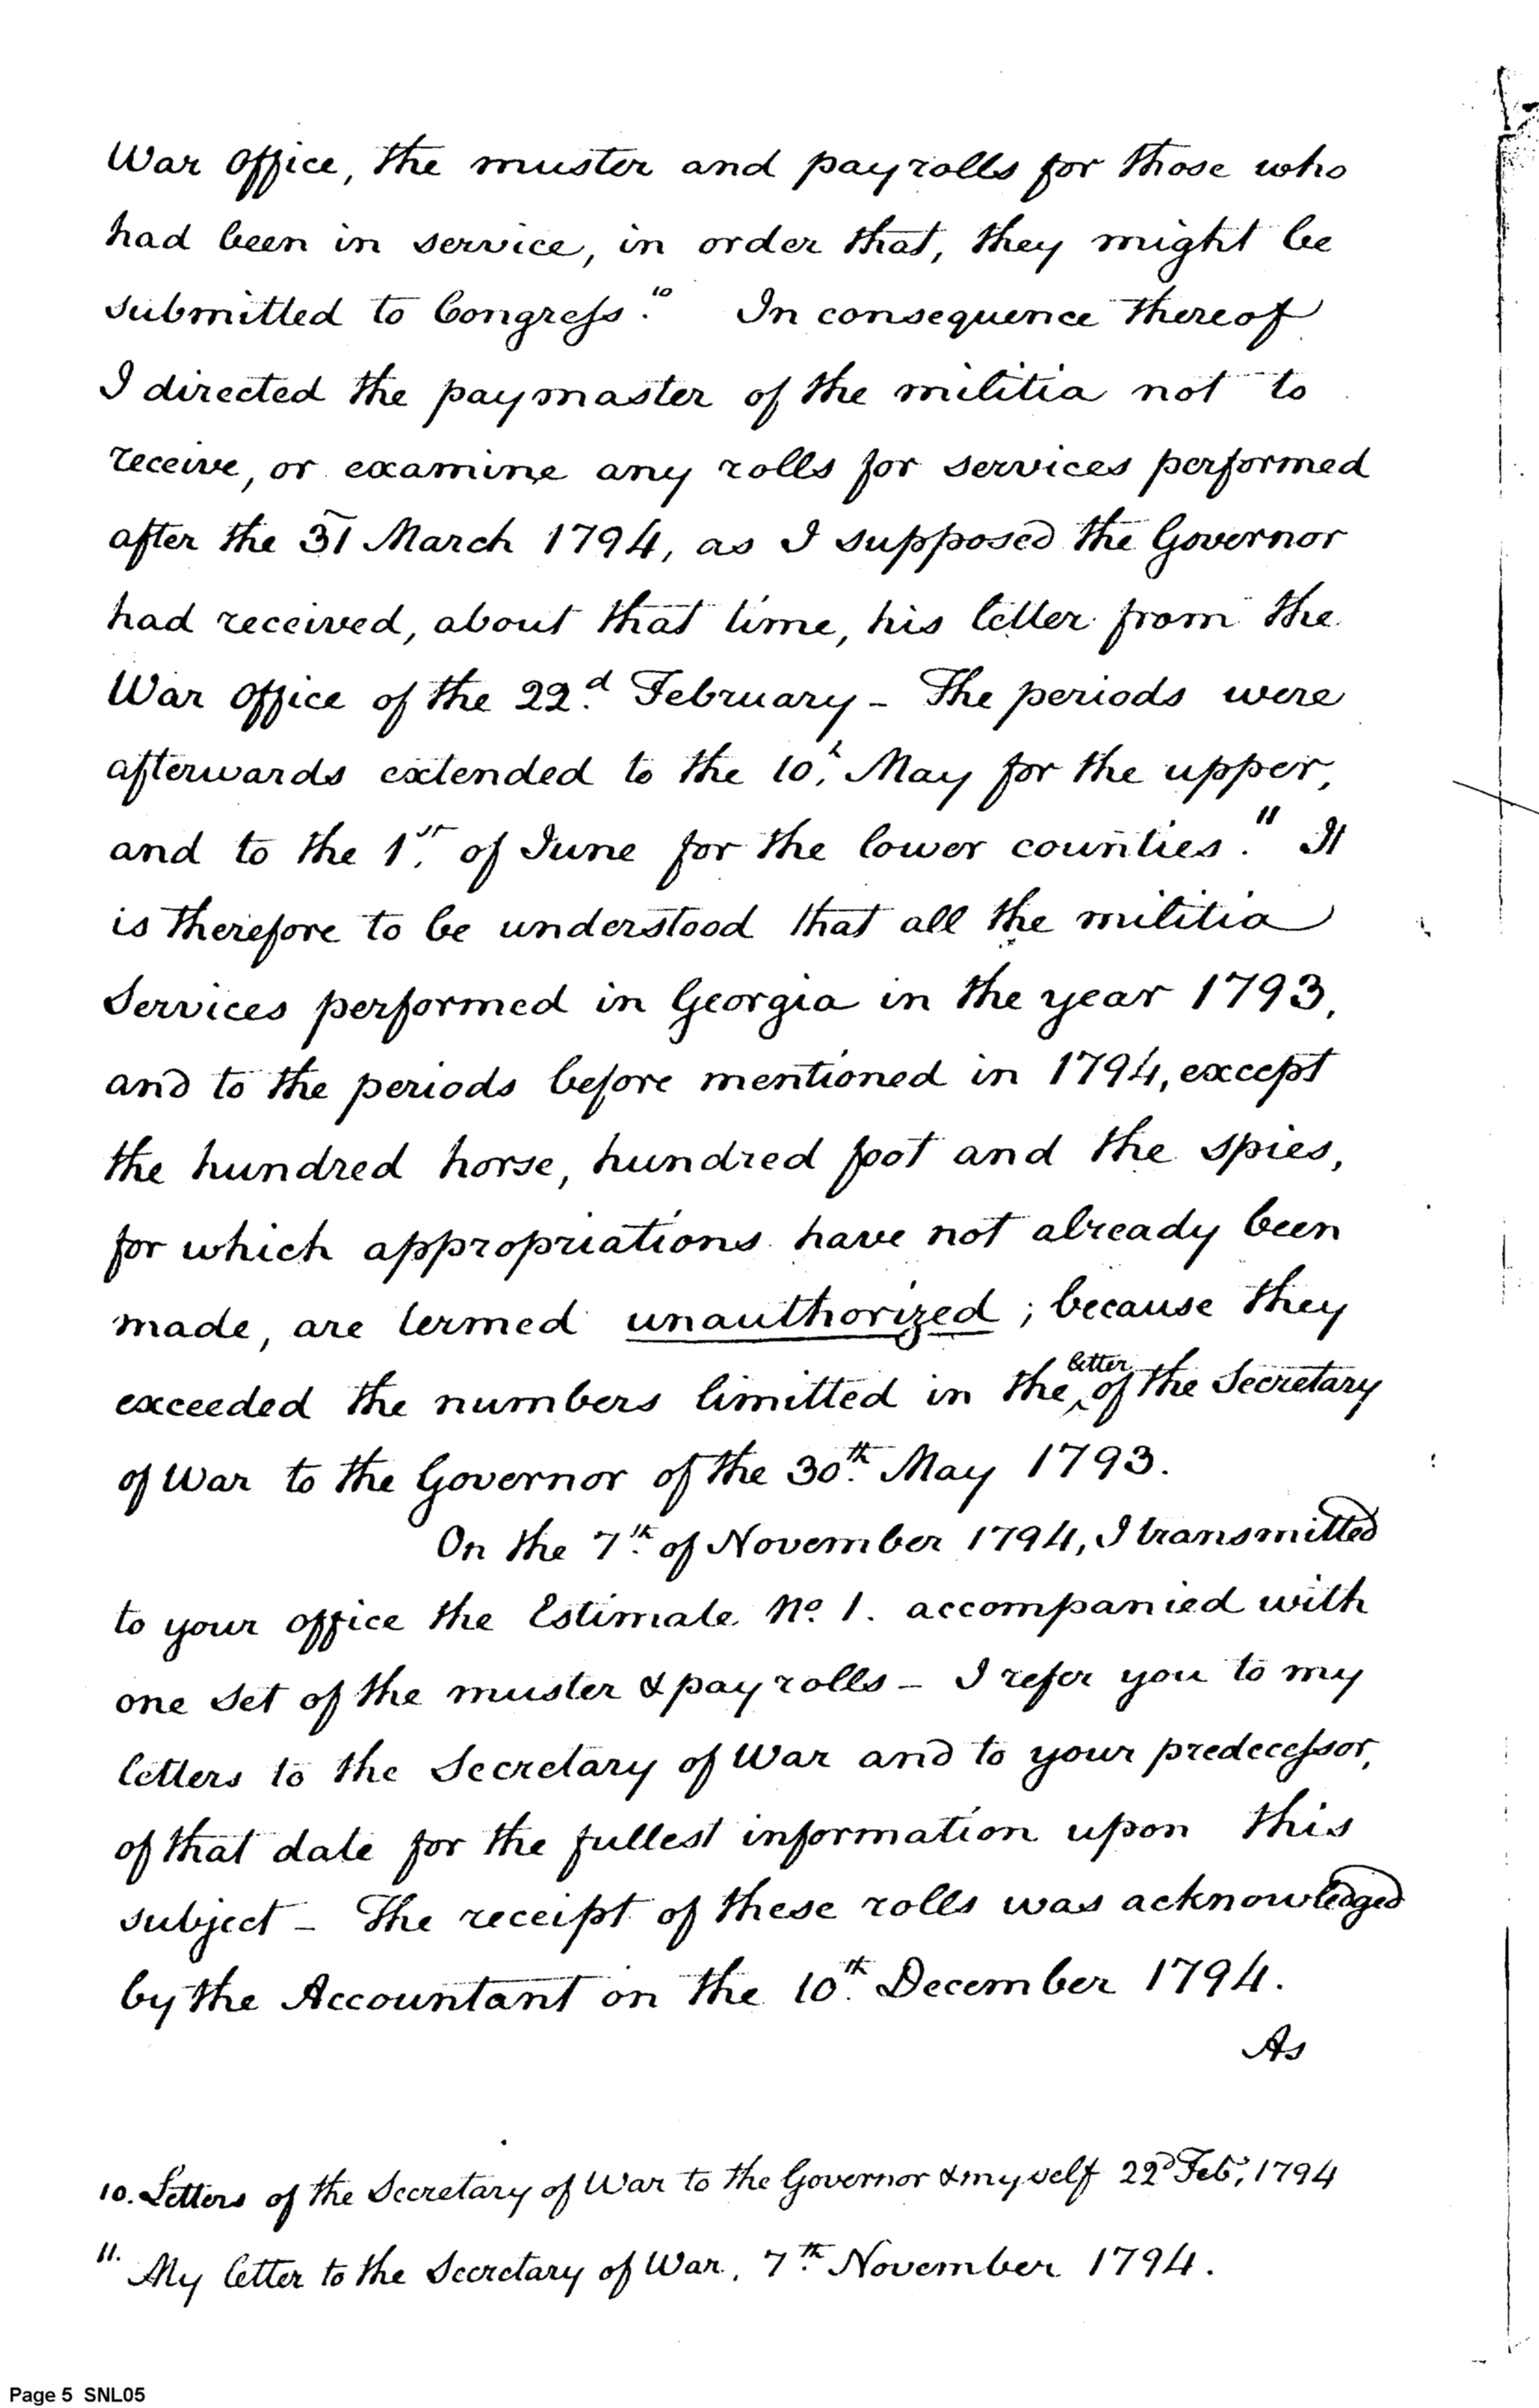 War Office, the muster and pay rolls for those who
had been in service, in order that, they might be
submitted to Congress.10 In consequence thereof
I directed the paymaster of the militia not to
receive, or examine any rolls for services performed
after the 31 March 1794, as I supposed the Governor
had received, about that time, his letter from the
War Office of the 22d. February - The periods were
afterwards extended to the 10h. May for the upper,
and to the 1st. of June for the lower counties.11 It
is therefore to be understood that all the militia
Services performed in Georgia in the year 1793,
and to the periods before mentioned in 1794, except
the hundred horse, hundred foot and the spies,
for which appropriations have not already been
made, are termed unauthorized; because they
exceeded the numbers limitted in the letter of the Secretary
of War to the Governor of the 30th. May 1793.
On the 7th. of November 1794, I transmitted
to your office the Estimate No. 1. accompanied with
one set of the muster & pay rolls - I refer you to my
letters to the Secretary of War and to your predecessor,
of that date for the fullest information upon this
subject - The receipt of these rolls was acknowledged
by the Accountant on the 10th. December 1794.
As
10. Letters of the Secretary of War to the Governor & myself 22d Feby, 1794
11. My letter to the Secretary of War, 7th. November 1794.
Page 5 SNL05